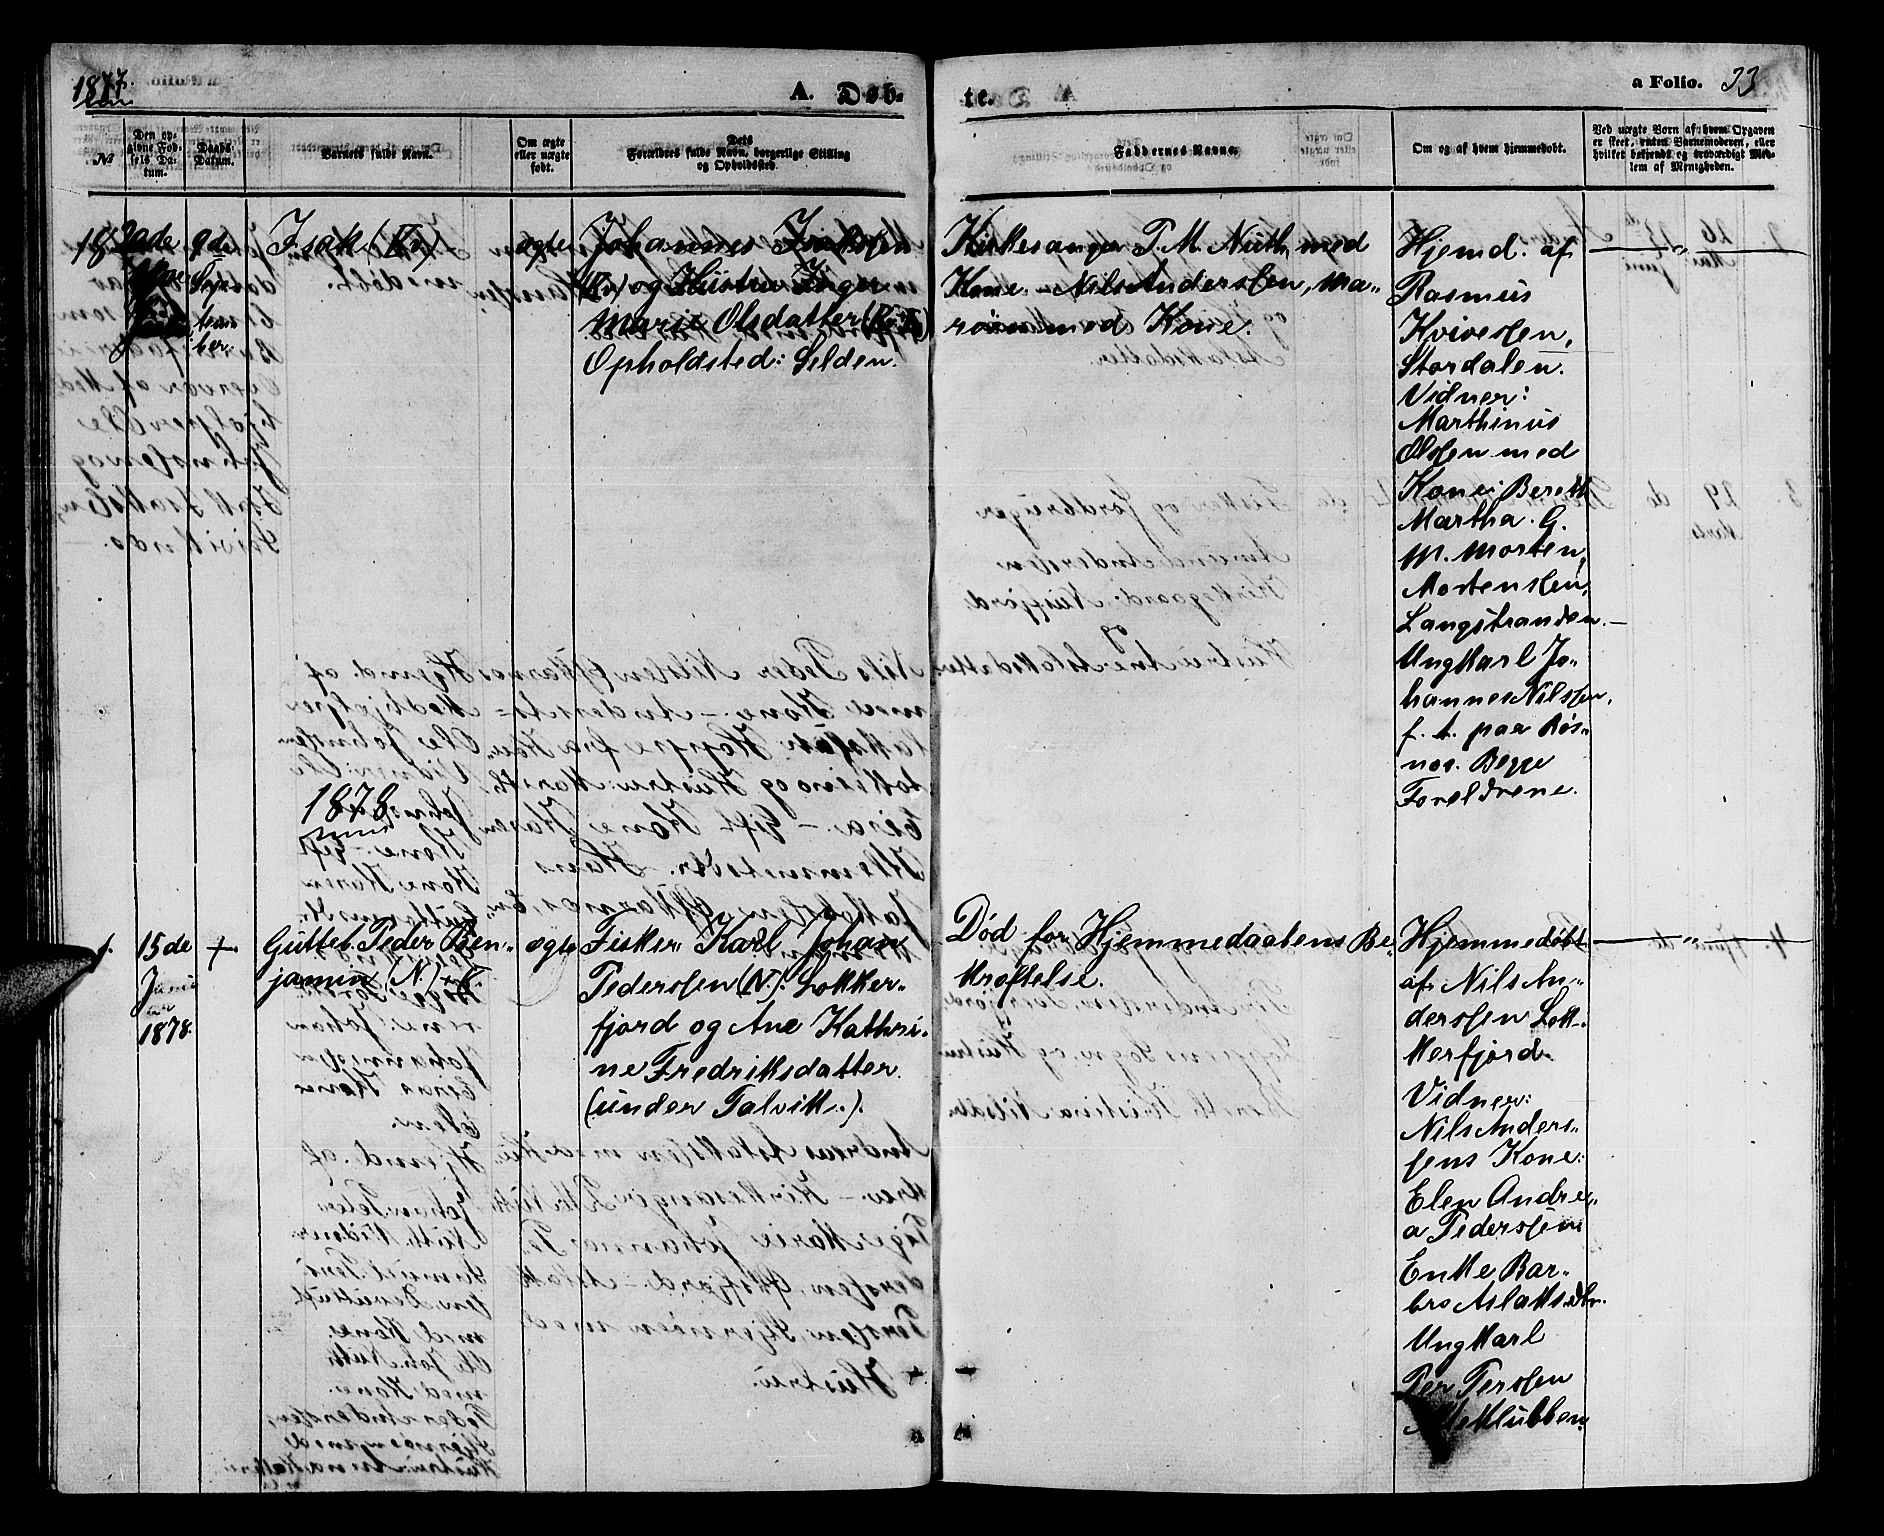 1877.
A. Døb-
te.
a Folio. 33
No
Den op-
givne Fød-
sels Da-
tum.
Daabs
Datum.
Barnets fulde Navn.
Om ægte
eller uægte
født.
Dets
Forældres fulde Navn, borgerlige Stilling
og Opholdssted.
Faddernes Navne.
Om og af hvem hjemmedøbt.
Ved uægte Børn af hvem Opgaven
er skeet, enten Barnemoderen, eller
hvilket bekjendt og troværdigt Med-
lem af Menigheden.
9de
Sep-
tem
ber.
Isak (Kv)
ægte
Johannes Isaksen
(Kv) og Hustru Inger
Marie Olsdatter
Opholdsted: Selden.
Kirkesanger P. M. Nuth med
Kone - Nils Andersen, Ma-
røen med Kone.
Hjemd. af
Rasmus
Kvivesen,
Stordalen.
Vidner:
Marthinus
Olsen med
Kone: Bereth
Martha. G.
M. Morten
Mortensen,
Langstranden.-
Ungkarl Jo-
hannes Nilsen,
f. t. paa Røs-
nes. Begge
Foreldrene.
1878
1.
15de
Juni
1878.
+
Gutteb. Peder Ben-
jamin (N)
ægte
Fisker Karl Johan
Pedersen (N). Lokker-
fjord og Ane Kathri-
ne Fredriksdatter
(under Talvik.).
Død før Hjemmedaabens Be-
kræftelse.
Hjemmedøbt
af Nils An-
dersen Lok-
kerfjord.
Vidner:
Nils Anders-
sens Kone:
Elen Andre-
a Pedersen
Enke Bar-
bro Aslaksdtr.
Ungkarl
Per Persen
Klubben.